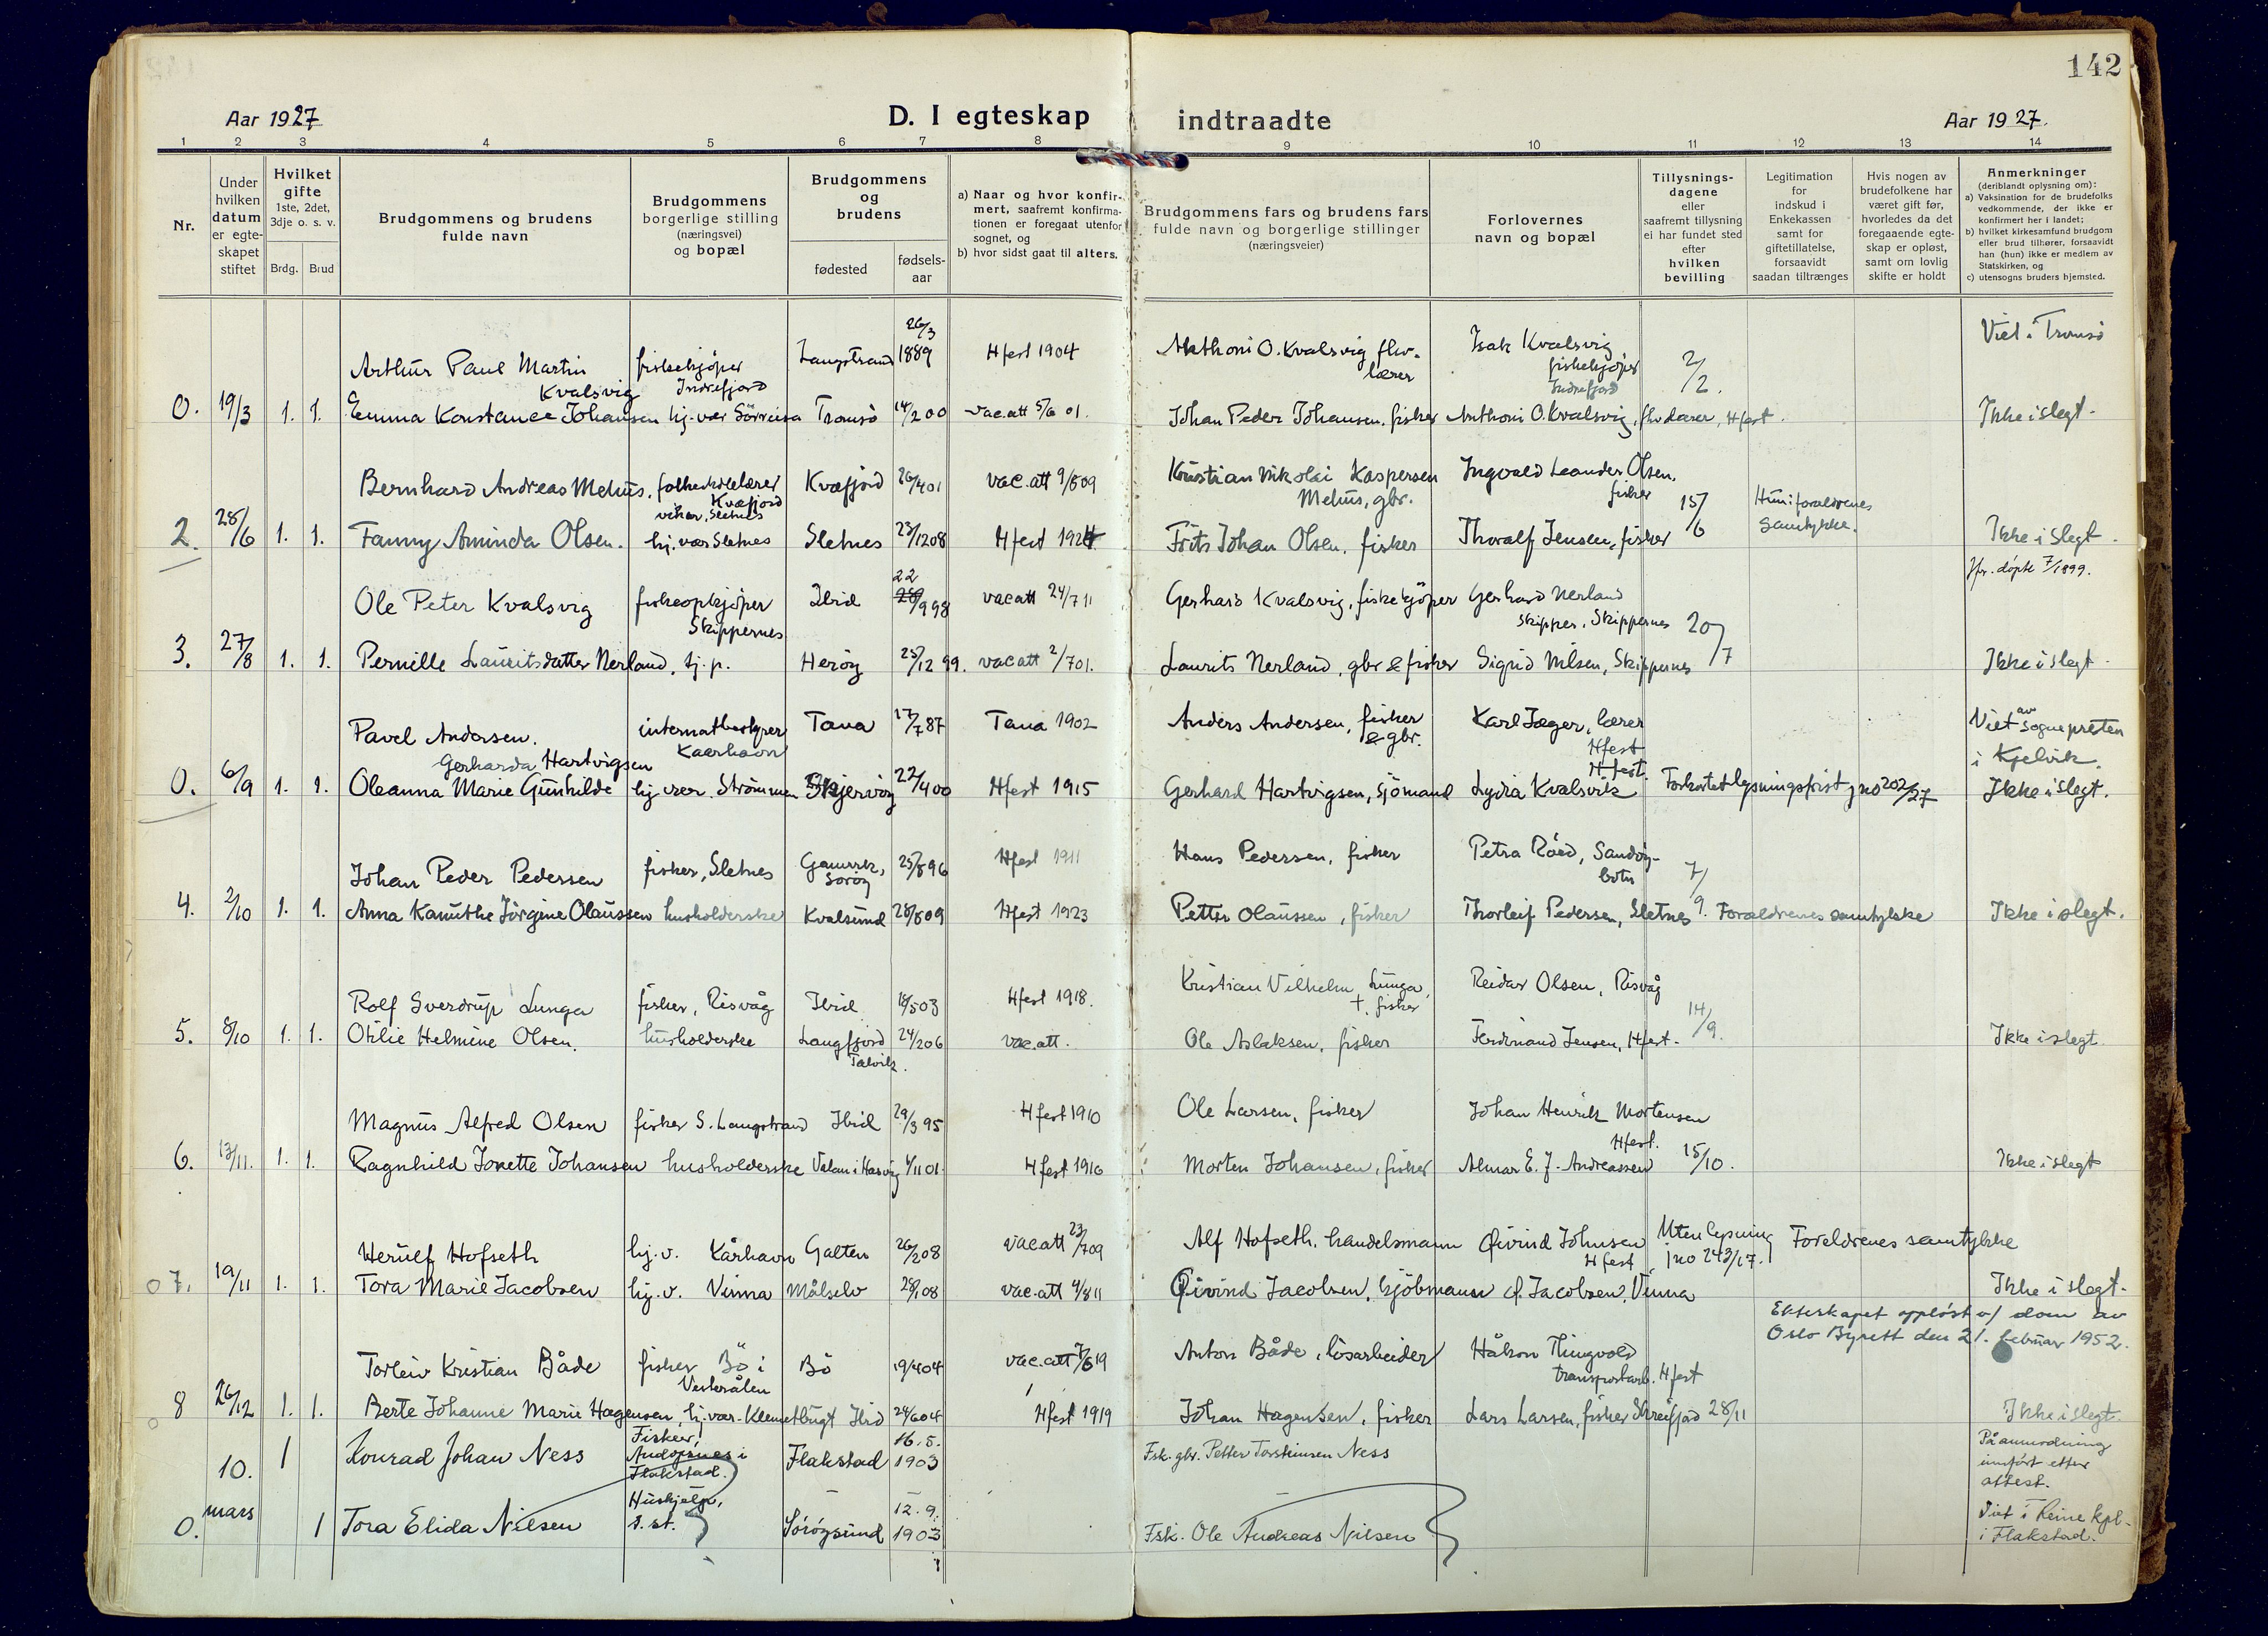 142
Aar 1927
D. I egteskap indtraadte
Aar 1927.
1 2 3 4 5 6 7 8 9 10 11 12 13 14
Nr.
Under
hvilken
datum
er egte-
skapet
stiftet
Hvilket
gifte
1ste, 2det,
3dje o. s. v.
Brdg. Brud
Brudgommens og brudens
fulde navn
Brudgommens
borgerlige stilling
(næringsvei)
og bopæl
Brudgommens
og
brudens
fødested
fødsels-
aar
a) Naar og hvor konfir-
mert, saafremt konfirma-
tionen er foregaat utenfor
sognet, og
b) hvor sidst gaat til alters.
Brudgommens fars og brudens fars
fulde navn og borgerlige stillinger
(næringsveier)
Forlovernes
navn og bopæl
Tillysnings-
dagene
eller
saafremt tillysning
ei har fundet sted
efter
hvilken
bevilling
Legitimation
for
indskud i
Enkekassen
samt for
giftetillatelse,
forsaavidt
saadan tiltrænges
Hvis nogen av
brudefolkene har
været gift før,
hvorledes da det
foregaaende egte-
skap er opløst,
samt om lovlig
skifte er holdt
Anmerkninger
(deriblandt oplysning om):
a) Vaksination for de brudefolks
vedkommende, der ikke er
konfirmert her i landet;
b) hvilket kirkesamfund brudgom
eller brud tilhører, forsaavidt
han (hun) ikke er medlem av
Statskirken, og
c) utensogns bruders hjemsted.
Arthur Paul Martin Kvalsvig fiskekjøper Indrefjord Langstrand 26/3 1889 Hfest 1904 Anthoni O. Kvalsvig flv. lærer Isak Kvalsvig fiskekjøper Indrefjord 2/2. Viet i Tromsø
0. 19/3 1. 1. Emma Konstance Johansen hj. vær Sörreisa Tromsö 14/2 00 vac.att 5/6 01. Johan Peder Johansen. fisker Anthoni O. Kvalsvig, flv. lærer, Hfest. Ikke i slegt.
Bernhard Andreas Mehus, folkeskolelærer Kvæfjord vikar, Sletnes Kvæfjord 26/4 01 vac.att 9/8 09 Kristian Nikolai Kaspersen Mehus, gbr. Ingvald Leander Olsen, fisker 15/6 Hun: foreldrenes samtykke.
2. 28/6 1. 1. Fanny Aminda Olsen. hj. vær Sletnes Sletnes 23/12 08 Hfest 1924 Frits Johan Olsen, fisker Thoralf Jensen, fisker Ikke i Slegt.
Ole Peter Kvalsvig fiskeopkjøper Skippernes Ibid 22/9 98 vac att 24/7 11 Gerhard Kvalsvig, fiskekjöper Gerhard Nerland skipper, Skippernes 20/7 Jfr. döpte 7/1899.
3. 27/8 1. 1. Pernille Lauritsdatter Nerland, tj. p. Heröy 25/12 99. vac att 2/7 01. Laurits Nerland, gbr & fisker Sigrid Nilsen, Skippernes Ikke i slegt.
Pavel Andersen. internatbestyrer Kaarhavn Tana 17/7 87 Tana 1902 Anders Andersen, fisker & gbr. Karl Jæger, lærer Hfest Viet av sognepresten i Kjelvik.
Gerharda Hartvigsen
0. 6/9 1. 1. Oleanna Marie Gunhilde hj. vær. Strömmen Skjervöy 22/4 00 Hfest 1915 Gerhard Hartvigsen, sjömand Lydia Kvalsvik Hfest. Forkortet lysningsfrist jno 202/27 Ikke i slegt.
Johan Peder Pedersen fisker, Sletnes Gamvik, Söröy 25/8 96 Hfest 1911 Hans Pedersen, fisker Petra Röed, Sandöy-botn 7/9.
4. 2/10 1. 1. Anna Kanuthe Jörgine Olaussen husholderske Kvalsund 28/8 09 Hfest 1923 Petter Olaussen, fisker Thorleif Pedersen, Sletnes Forældrenes samtykke Ikke i slegt.
Rolf Sverdrup Lunga fisker, Risvåg Ibid 18/5 03 Hfest 1918. Kristian Vilhelm Lunga, †. fisker Reidar Olsen, Risvåg 14/9.
5. 8/10 1. 1. Otilie Helmine Olsen. husholderske Langfjord Talvik. 24/2 06 vac.att. Ole Aslaksen, fisker Ferdinand Jensen, Hfest. Ikke i slegt.
Magnus Alfred Olsen fisker S. Langstrand Ibid 29/3 95 Hfest 1910 Ole Larsen, fisker Johan Henrik Mortensen Hfest.
6. 13/11. 1. 1. Ragnhild Jonette Johansen husholderske Valan i Hasvig 4/11 01. Hfest 1916 Morten Johansen, fisker Almar E. J. Andreassen 15/10. Ikke i slegt
Herulf Hofseth hj. v. Kårhavn Galten 26/2 08 vac att 23/7 09 Alf Hofseth, handelsmann Øivind Johnsen Hfest Uten lysning jno 243/27. Foreldrenes samtykke
07. 19/11 1. 1. Tora Marie Jacobsen hj. v. Vinna Målselv 28/1 08 vac.att 4/8 11 Øivind Jacobsen, kjöbmann Ø. Jacobsen, Vinna Ikke i slegt.
Ekteskapet oppløst v/ dom av
Oslo Byrett den 21. februar 1952.
Torleiv Kristian Både fisker, Bö i Vesterålen Bö 19/4 04 vac.att 7/6 19 Anton Både, lösarbeider Håkon Thingvold transportarb. Hfest
0 8 26/12 1. 1. Berte Johanne Marie Hagensen, hj. vær. Klemetbugt Ibid 24/6 04 Hfest 1919 Johan Hagensen, fisker Lars Larsen, fisker Skreifjord 28/11 Ikke i slegt.
10. 1 Konrad Johan Ness Fisker, Andopsnes i Flakstad. Flakstad 16.5. 1903 Fsk. gbr. Petter Torsteinsen Ness På anmodning innført etter attest.
mars
0. 1 Tora Elida Nilsen Huskjelp, s. st. Söröysund 12.9. 1903 Fsk. Ole Andreas Nilsen Viet i Reine kpl. i Flakstad.